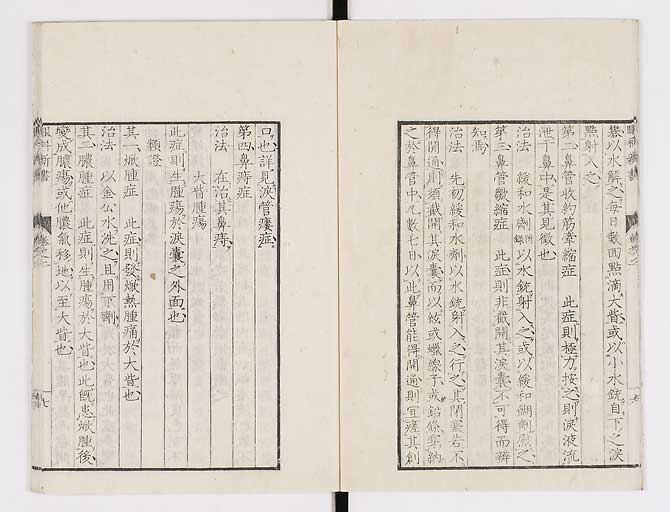 巻以水解之、每日數回點滴大眥、或以小水銃自下之淚
點射入之、
第二鼻管收約筋牽縮症　此症則極力按之、則淚液流
泄于鼻中、是其見徵也、
治法　緩和水劑以水銃射入之、或以緩和糊劑
第三鼻管皺縮症　此症則非截開其淚囊、不可得而辨
知焉、
治法　先初緩和水劑以水銃射入之、行之其閉塞若不
得開通、則須截開其淚囊、而以絃或蠟線子、或鉛條穿納
之於鼻管中、凡數七日、以此鼻管能得開通、則宜其創
口也、詳見淚管瘻症、
第四鼻痔症
治法　在治其鼻痔、
大眥腫瘍
此症則生腫瘍於淚囊之外面也、
類證
其一焮腫症　此症則發焮熱腫痛於大眥也、
治法　以金公水洗之、且用下劑、
其二膿腫症　此症則生腫瘍於大眥也、此既患焮腫後、
變成膿瘍、或他膿氣移地以至大眥也、
眼科新書
七